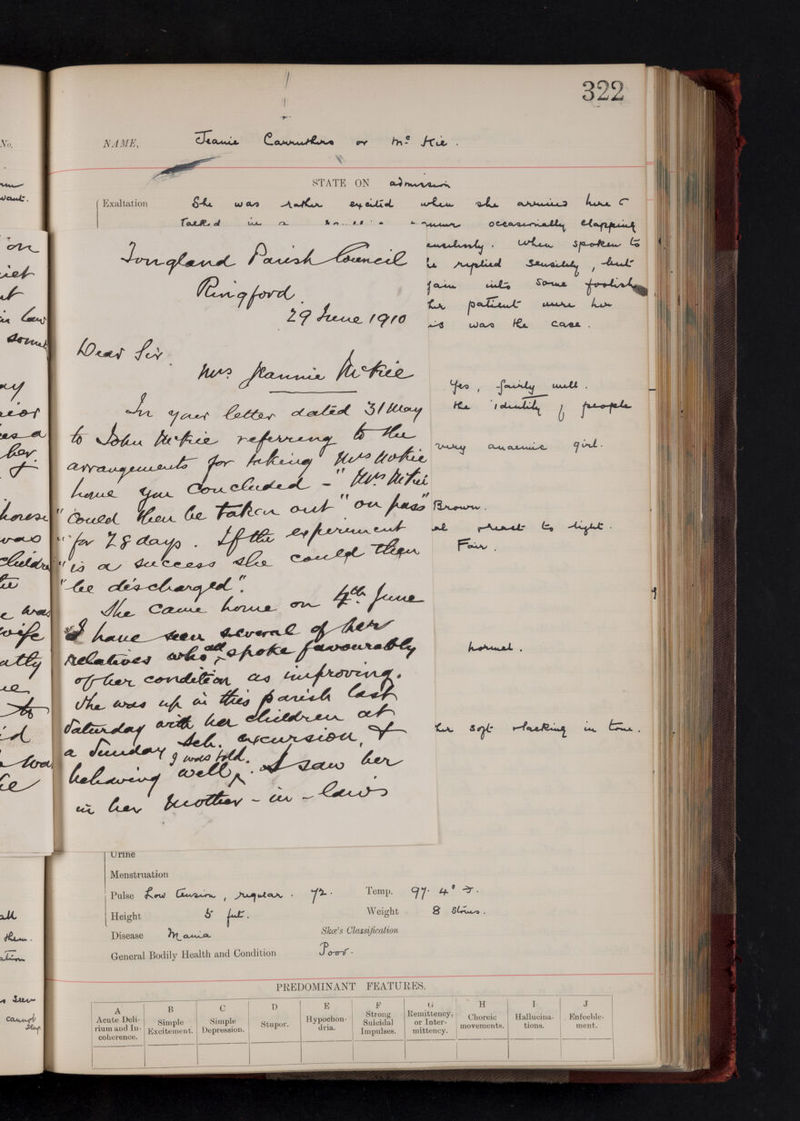 322
NAME, Jeanie Carruthers or Mc Kie.
STATE ON admission
Exaltation She was rather excited when she arrived here &
Talked in a occasionally clapping
When spoken to
he replied sensibly, but
gain into some foolish
her patient were her
is was the case.
Yes, fairly well.
the identity of people
very anaemic girl.
Brown.
react to light.
Fair.
Normal.
her soft lacking in tone.
Tongland Parish Council
Ringford
29 June 1910
Dear Sir
Mrs Jeannie McKie
In your letter dated 31 May
to John McKie referring to the
arrangements for taking Mrs McKie
home you concluded - "Mrs McKie
"could then be taken out "on pass"
"for 28 days. If the experiment
"is a success she could then
"be discharged".
She came home on 4th June
I have seen several of her
relatives who all spoke favourably
of her condition as improving.
She was up in this parish last
Saturday with her children at
a Sunday Sch. excursion, &
I was told.
behaving well. I saw her
in her mother-in-law's
Urine
Menstruation
Pulse Low tension, regular. 72. Temp. 97.4° F.
Height 5 feet. Weight 8 Stones.
Disease Mania Skae's Classification
General Bodily Health and Condition Poor.
PREDOMINANT FEATURES.
A B C D E F G H I J
Acute Delirium and Incoherence. Simple Excitement. Simple Depression. Stupor. Hypochondria. Strong Suicidal Impulses. Remittency, or Intermittency. Choreic movements. Hallucinations. Enfeeblement.
No.
want.
on
in law
her.
horse
was
children
was
wife
to
all
them.
seen
cannot
sleep